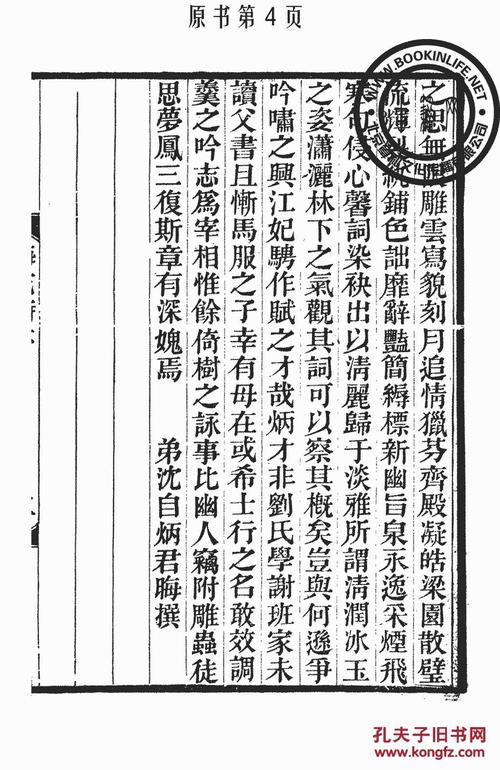 原书第4页
WWW.BOOKINLIFE.NET
之思無雕雲寫貌刻月追情獵芬齊殿凝皓梁園散璧
流輝鋪色詘靡辭豔簡縟標新幽旨泉永逸采煙飛
寒侵心馨詞染袂出以淸麗歸于淡雅所謂淸潤冰玉
之姿瀟灑林下之氣觀其詞可以察其槪矣豈與何遜爭
吟嘯之興江妃騁作賦之才哉炳才非劉氏學謝班家未
讀父書且慚馬服之子幸有母在或希士行之名敢效調
羹之吟志爲宰相惟餘倚樹之詠事比幽人竊附雕蟲徒
思夢鳳三復斯章有深媿焉　弟沈自炳君晦撰
孔夫子旧书网
www.kongfz.com